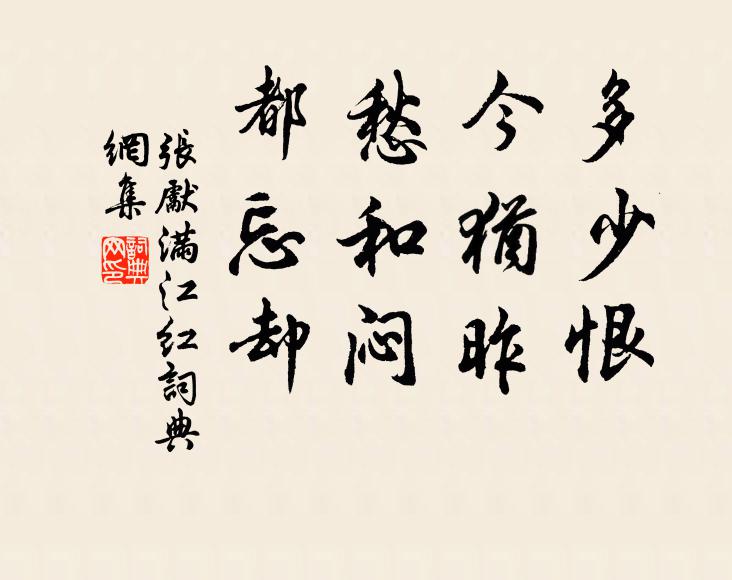 多少恨
今猶昨
愁和闷
都忘却
張獻滿江红詞典
網集
詞典
网印